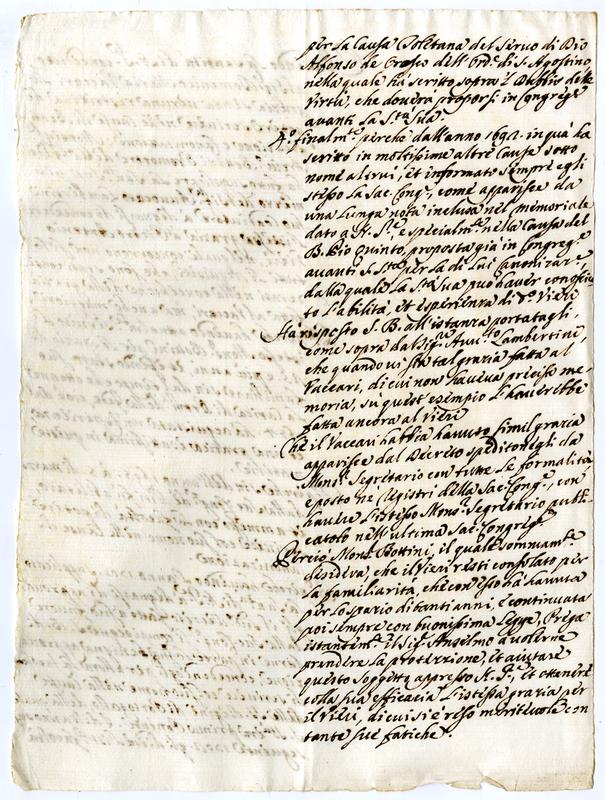 per la Causa Toletana del Servo di Dio
Alfonso de Orosco dell'Ord.e di S. Agostino
nella quale hà scritto sopra 'l Dubbio delle
Virtù, che dovera proporsi in Congreg.e
avanti la S.tà Sua
4.° finalm.te perche dall'anno 1692. in quà ha
scritto in moltissime altre Cause sotto
nome altrui, et informato sempre egli
stesso la Sac. Cong.e, come apparisce da
una lunga nota inclusa nel memoriale
dato a N. S.re, e specialm.te nella Causa del
B. Pio Quinto, proposta già in Congreg.e
avanti S. S.tà per la di lui Canonizaz.e,
dalla quale la S.tà Sua può haver conosciu
to l'abilità, et esperienza di d.o Vieri
Hà risposto S. B. all'istanza portatagli,
come sopra dal Sig.re Avv.to Lambertini,
che quando vi sia tal grazia fatta al
Vaccari, di cui non haveva precisa me-
moria, sù quest'esempio l'haverebbe
fatta ancora al Vieri
Che il Vaccari habbia havuto simil grazia
apparisce dal Decreto speditonegli da
Mons.r Segretario con tutte le formalità,
e posto ne Registri della Sac. Cong.e, con
havere l'istesso Mons.r Segretario publi-
catolo nell'ultima Sac. Congreg.e
Perciò Mons.r Bottini, il quale sommam.te
desidera, che il Vieri resti consolato per
la familiarità, che con esso hà havuta
per lo spazio di tanti anni, e continuata
poi sempre con buonissima legge, Prega
istantem.te il Sig.r Anselmo a volerne
prendere la protezzione, et aiutare
questo soggetto appresso N. S.re, et ottenere
colla sua efficacia l'istessa grazia per
il Vieri, di cui si è reso meritevole con
tante sue fatiche.